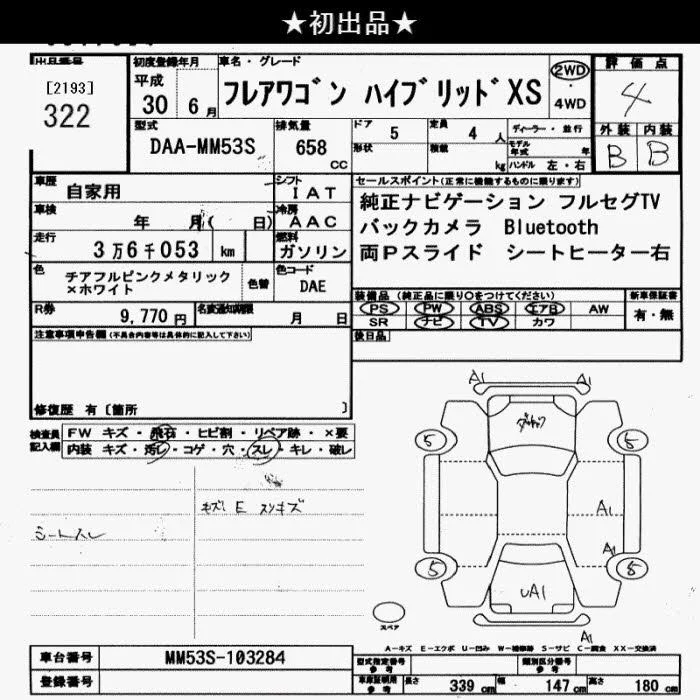 ★初出品★
出品番号
[2193]
322
初度登録年月
平成
30 6月
車名・グレード
フレアワゴン ハイブリッド XS
2WD
・
4WD
評価点
4
型式
DAA-MM53S
排気量
658
CC
ドア 5
定員 4人
形状
積載 kg
ディーラー・並行
モデル年式 年
ハンドル 左・右
外装 内装
B B
車歴 自家用
シフト IAT
車検 年 月( 日)
冷房 AAC
走行 3万6千053 km
燃料 ガソリン
色 チアフルピンクメタリック
×ホワイト
色替
色コード
DAE
R券 9,770円
名変通知期限 月 日
セールスポイント(正常に機能するものに限ります)
純正ナビゲーション フルセグTV
バックカメラ Bluetooth
両Pスライド シートヒーター右
装備品(純正品に限り○をつけてください)
PS PW ABS エアB AW
SR ナビ TV カワ
新車保証書
有・無
後日品
注意事項申告欄(不具合内容等は具体的に記入して下さい)
修復歴 有〔箇所 〕
検査員
記入欄
FW キズ・飛石・ヒビ割・リペア跡・×要
内装 キズ・汚レ・コゲ・穴・スレ・キレ・破レ
キズ E スリキズ
シートスレ
A1 A1
5 5
A1
A1
5 5
UA1
A1
スペア
A-キズ E-エクボ U-凹み W-補修跡 S-サビ C-腐食 XX-交換済
車台番号 MM53S-103284
登録番号
型式指定番号
参考
類別区分番号
参考
車庫証明用
参考
長さ 339 cm 幅 147 cm 高さ 180 cm